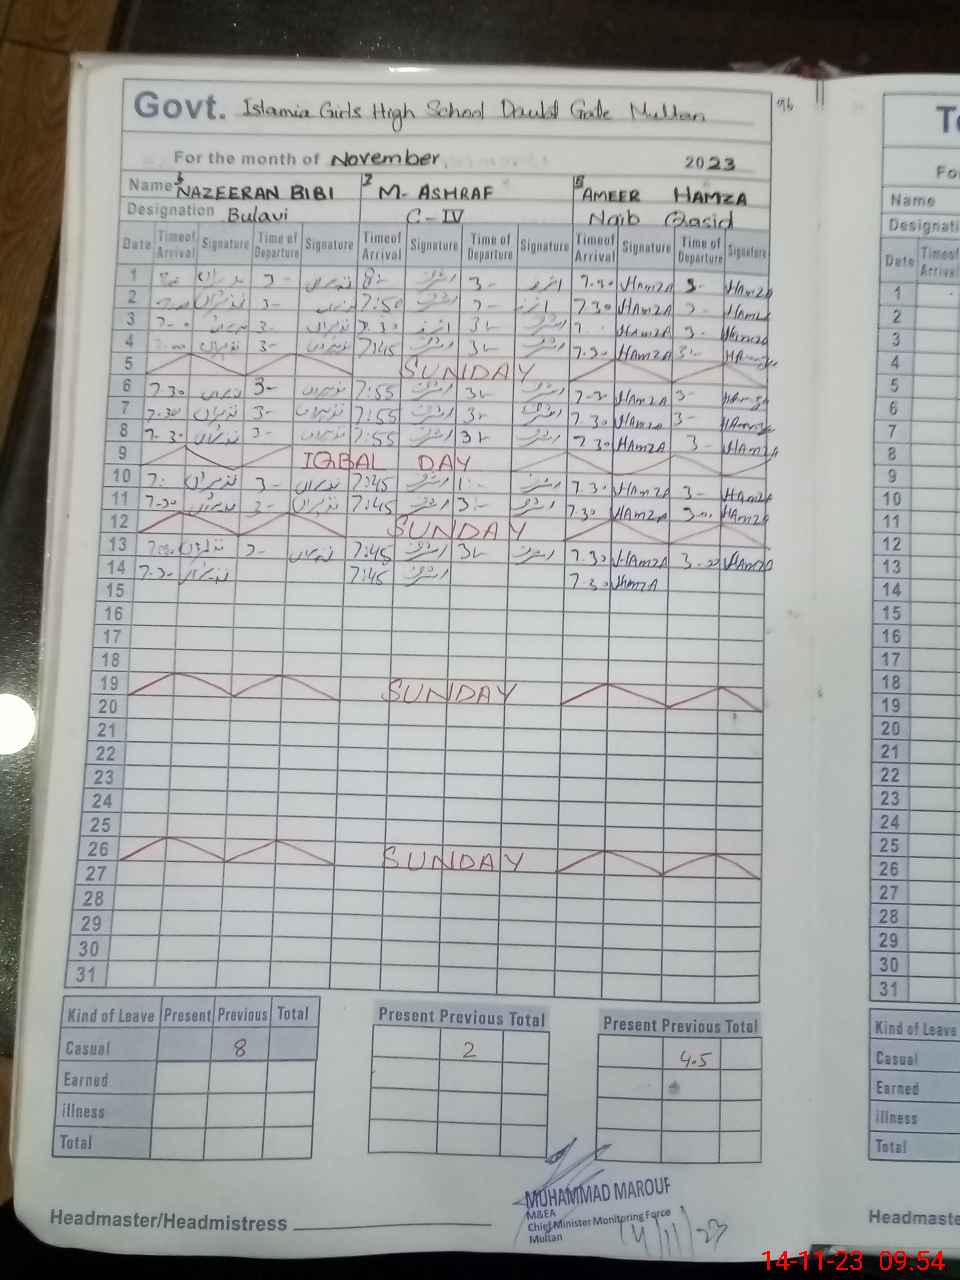 Govt. Islamia Girls High School Daulat Gate Multan
96
For the month of November 2023
Name NAZEERAN BIBI 2 M. ASHRAF AMEER HAMZA
Designation Bulavi C-IV Naib Qasid
Date Time of Arrival Signature Time of Departure Signature Time of Arrival Signature Time of Departure Signature Time of Arrival Signature Time of Departure Signature
1 نذیراں 3- نذیراں 8- اشرف 3- اشرف 7.30 HAMZA 3- HAMZA
2 نذیراں 3- 7:50 اشرف اشرف 7.30 HAMZA HAMZA
3 نذیراں 3- نذیراں 7:30 اشرف اشرف HAMZA 3- HAMZA
4 نذیراں 3- نذیراں 7:45 اشرف اشرف 7.30 HAMZA 3- HAMZA
5 SUNDAY
6 7.30 نذیراں 3- نذیراں 7:55 اشرف اشرف HAMZA 3- HAMZA
7 7.30 نذیراں 3- نذیراں 7:55 اشرف اشرف 7.30 HAMZA 3- HAMZA
8 7.30 نذیراں 3- نذیراں 7:55 اشرف اشرف 7.30 HAMZA 3- HAMZA
9 IQBAL DAY
10 نذیراں 3- نذیراں 7:45 اشرف اشرف 7.30 HAMZA 3- HAMZA
11 7.30 نذیراں 3- نذیراں 7:45 اشرف اشرف 7.30 HAMZA 3.00 HAMZA
12 SUNDAY
13 نذیراں نذیراں 7:45 اشرف اشرف 7.30 HAMZA 3.00 HAMZA
14 7.30 نذیراں 7:45 اشرف 7.30 HAMZA
15
16
17
18
19 SUNDAY
20
21
22
23
24
25
26 SUNDAY
27
28
29
30
31
Kind of Leave Present Previous Total Present Previous Total Present Previous Total
Casual 8 2 4.5
Earned
illness
Total
MUHAMMAD MAROUF
M&EA
Chief Minister Monitoring Force
Multan
14/11/23
Headmaster/Headmistress
Name
Designati
Date Time of Arrival
1
2
3
4
5
6
7
8
9
10
11
12
13
14
15
16
17
18
19
20
21
22
23
24
25
26
27
28
29
30
31
Kind of Leave
Casual
Earned
illness
Total
Headmaste
14-11-23 09.54